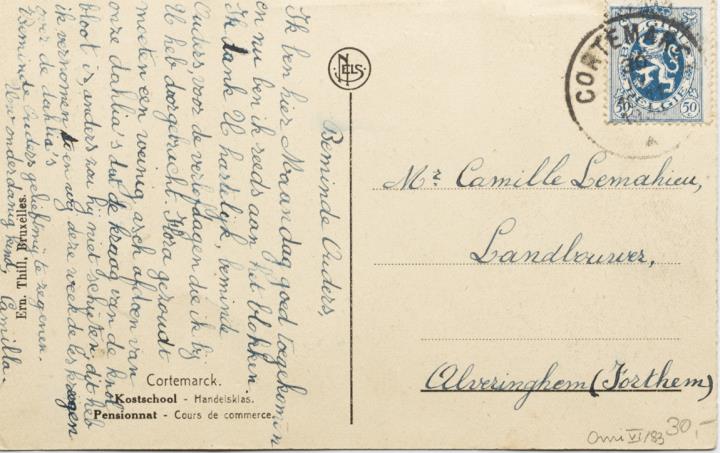 Beminde Ouders,
Ik ben hier Maandag goed toegekomen
en nu ben ik reeds aan het blokken.
Ik dank U hartelijk, beminde
Ouders, voor de verlofdagen die ik bij
U heb doorgebracht. Flora gezoudt
moeten een weinig asch afdoen van
onze dahlia's dat de kraag van de knol
bloot is, anders zou hij niet schieten, dit heb
ik vernomen in een weg deze week de les kregen
over de dahlia's
Beminde Ouders gelieft mij te zegenen.
Uw onderdanig kind, Camilla.
Ern. Thill, Bruxelles.
Cortemarck.
Kostschool - Handelsklas.
Pensionnat - Cours de commerce.
NELS
CORTEMARCK
BELGIE
50 50
Mr Camille Lemahieu,
Landbouwer,
Alveringhem (Forthem)
Omi VI/83 30,-